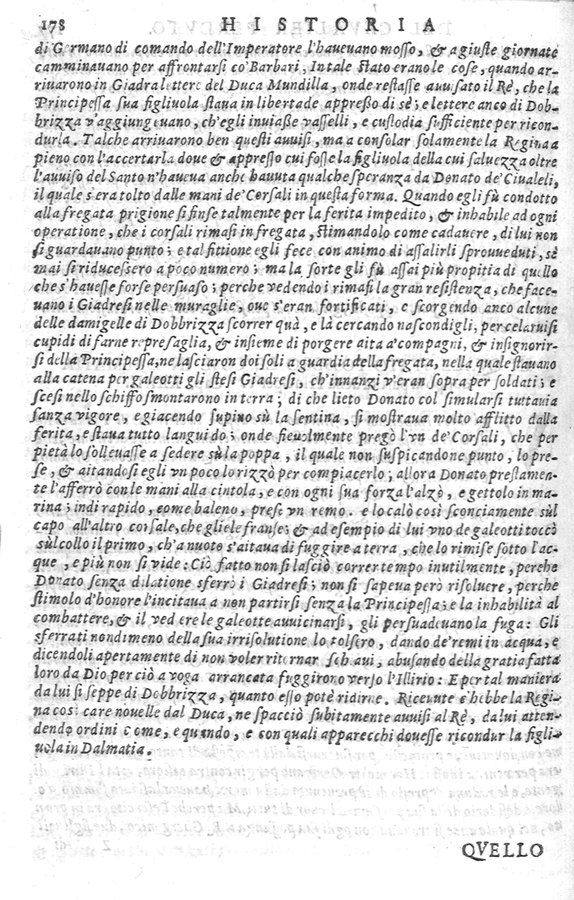 178 HISTORIA
di Germano di comando dell'Imperatore l'haueuano mosso, & a giuste giornate
camminauano per affrontarsi co'Barbari, In tale stato erano le cose, quando ar-
riuarono in Giadra lettere del Duca Mundilla, onde restasse auuisato il Rè, che la
Principessa sua figliuola staua in libertade appresso di sè; e lettere anco di Dob-
brizza v'aggiungeuano, ch'egli inuiasse vasselli, e custodia sufficiente per ricon-
durla. Talche arriuarono ben questi auuisi, ma a consolar solamente la Regina a
pieno con l'accertarla doue & appresso cui fosse la figliuola della cui saluezza oltre
l'auuiso del Santo n'haueua anche hauuta qualche speranza da Donato de'Ciualeli,
il quale s'era tolto dalle mani de'Corsali in questa forma. Quando egli fù condotto
alla fregata prigione si finse talmente per la ferita impedito, & inhabile ad ogni
operatione, che i corsali rimasi in fregata, stimandolo come cadauere, di lui non
si guardauano punto; e tal fittione egli fece con animo di assalirli sprouueduti, sè
mai si riducessero a poco numero; ma la sorte gli fù assai più propitia di quello
che s'hauesse forse persuaso; perche vedendo i rimasi la gran resistenza, che face-
uano i Giadresi nelle muraglie, oue s'eran fortificati, e scorgendo anco alcune
delle damigelle di Dobbrizza scorrer quà, e là cercando nascondigli, per celaruisi
cupidi di farne represaglia, & insieme di porgere aita a'compagni, & insignorir-
si della Principessa, ne lasciaron doi soli a guardia della fregata, nella quale stauano
alla catena per galeotti gli stesi Giadresi, ch'innanzi v'eran sopra per soldati; e
scesi nello schiffo smontarono in terra; di che lieto Donato col simularsi tuttauia
sanza vigore, e giacendo supino sù la sentina, si mostraua molto afflitto dalla
ferita, e staua tutto languido; onde fieuolmente pregò l'vn de'Corsali, che per
pietà lo solleuasse a sedere sù la poppa, il quale non suspicandone punto, lo pre-
se, & aitandosi egli vn poco lo rizzò per compiacerlo; allora Donato prestamen-
te l'afferrò con le mani alla cintola, e con ogni sua forza l'alzò, e gettolo in ma-
rina; indi rapido, come baleno, prese vn remo. e lo calò così sconciamente sùl
capo all'altro corsale, che gliele franse; & ad esempio di lui vno de galeotti toccò
sùl collo il primo, ch'a nuoto s'aitaua di fuggire a terra, che lo rimise sotto l'ac-
que, e più non si vide: Ciò fatto non si lasciò correr tempo inutilmente, perche
Donato senza dilatione sferrò i Giadresi; non si sapeua però risoluere, perche
stimolo d'honore l'incitaua a non partirsi senza la Principessa; e la inhabilità al
combattere, & il vedere le galeotte auuicinarsi, gli persuadeuano la fuga: Gli
sferrati nondimeno della sua irrisolutione lo tolsero, dando de'remi in acqua, e
dicendoli apertamente di non voler ritornar schiaui, abusando della gratia fatta
loro da Dio per ciò a voga arrancata fuggirono verso l'Illirio: E per tal maniera
da lui si seppe di Dobbrizza, quanto esso potè ridirne. Riceuute c'hebbe la Regi-
na così care nouelle dal Duca, ne spacciò subitamente auuisi al Rè, da lui atten-
dendo ordini come, e quando, e con quali apparecchi douesse ricondur la figli-
uola in Dalmatia.
QVELLO